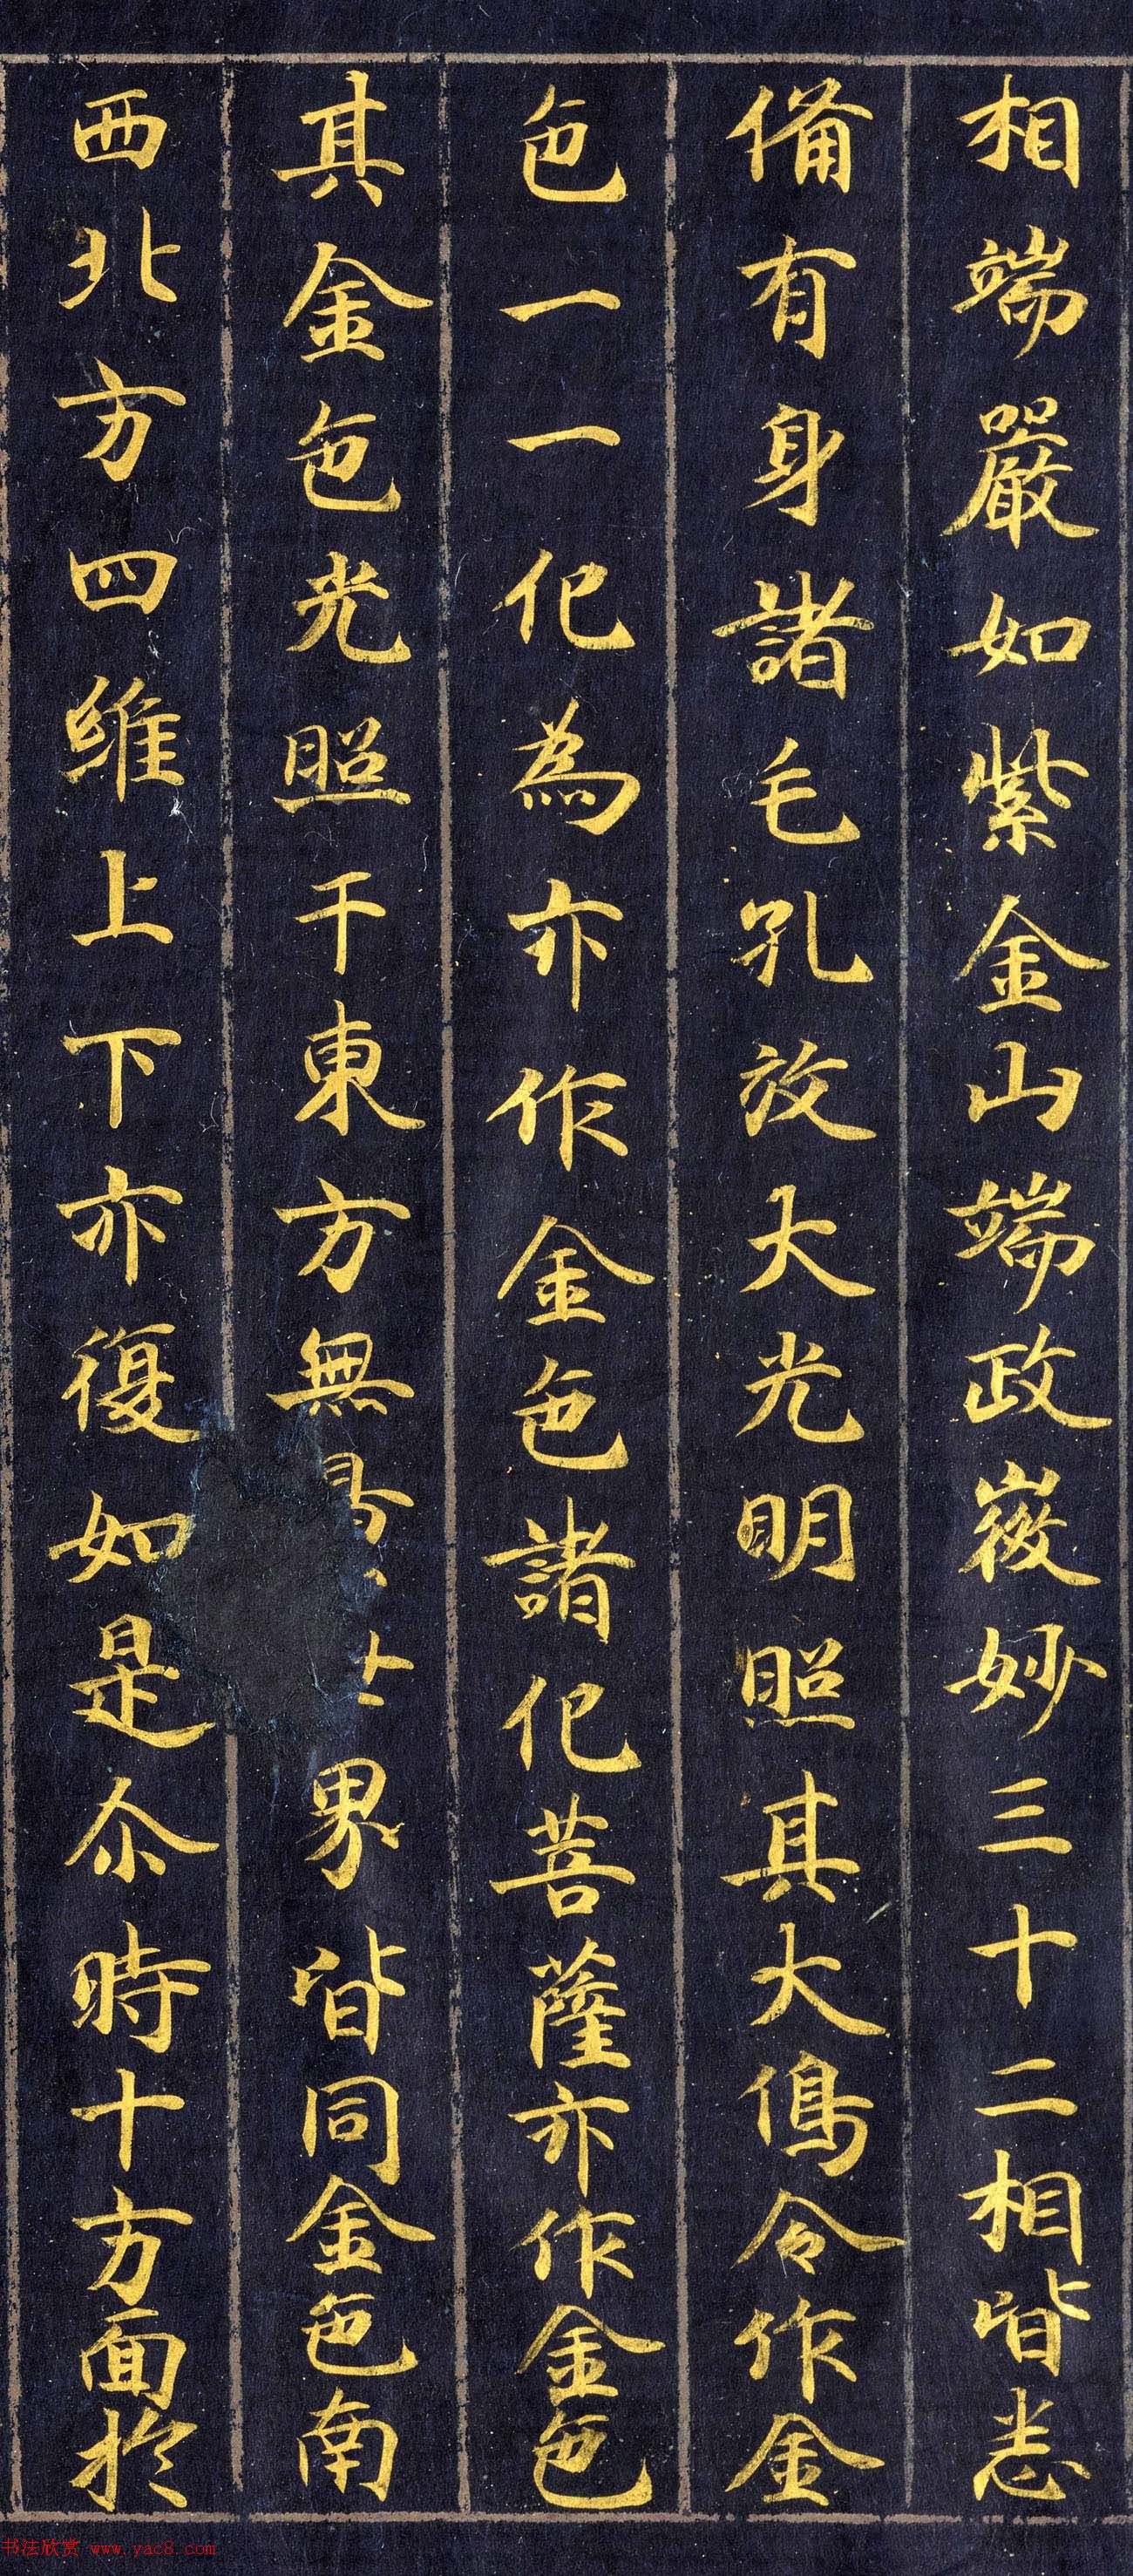 相端嚴如紫金山端政微妙三十二相皆悉
備有身諸毛孔放大光明照其大像令作金
色一一化為亦作金色諸化菩薩亦作金色
其金色光照于東方無量界皆同金色南
西北方四維上下亦復如是尒時十方面於
书法欣赏 www.yac8.com